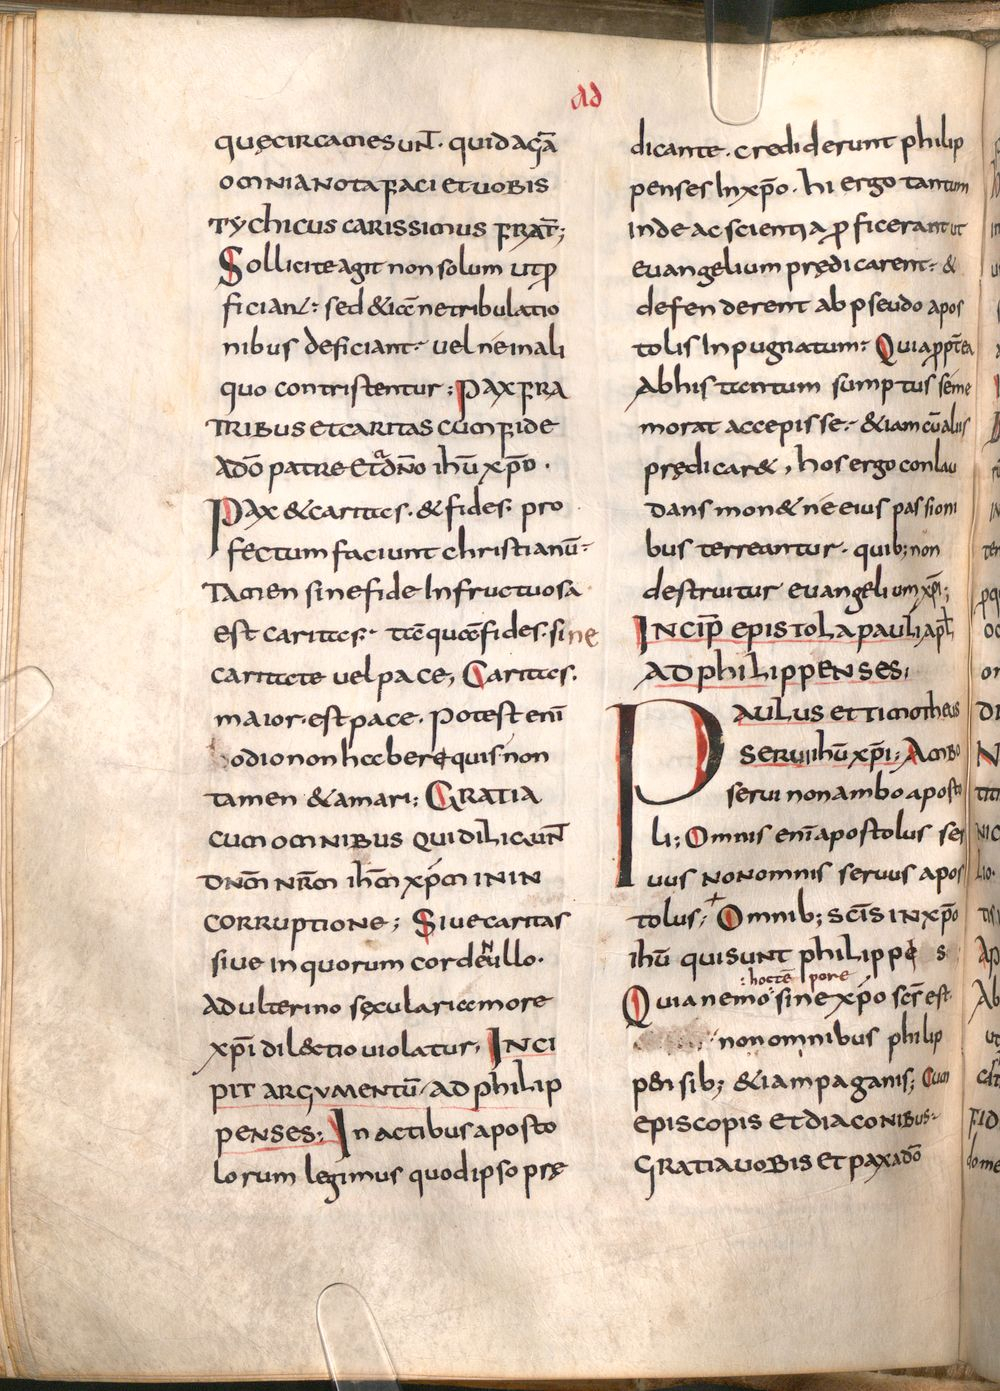 ad
quęcircamesunt̄· quidagā
omnianotafaci etuobis
Tychicus carissimus frat̄;
Sollicite agit non solum utp̱
ficiant: sed &iā netribulatio
nibus deficiant· uel neinali
quo contristentur; Paxfra
tribus etcaritas cumfide
adō patre et a dn̄o ihū xp̄o ·
Pax & caritas. & fides. pro
fectum faciunt christianū:
Tamen sinefide Infructuosa
est caritas· tāquāfides·sine
caritate uel pace, Caritas.
maior·estpace. Potest enī
odio non habere quis non
tamen & amari; Gratia
cum omnibus qui diligunt̄
dnm̄ nrm̄ ihm̄ xp̄m inin
corruptione; Siuecaritas
siue inquorum corde nullo·
adulterino sęculariamore
xp̄i dil&tio uiolatur; Inci
pit argumentū ad philip
penses; In actibus aposto
lorum legimus quod ipso prę
dicante. crediderunt philip
penses Inxp̄o. hi ergo tantum
inde ac scientia p̱ficerant ut
euangelium prędicarent· &
defenderent ab pseudo apos
tolis Inpugnatum: Quiap̱pt̄ea
Abhis tantum sumptus seme
morat accepisse· &iam cū aliis
prędicar&, hos ergo conlau
dans mon& ne eius passioni
bus terreantur· quib; non
destruitur euangelium xp̄i;
Incip̄ epistola pauli apl̄
ad philippenses;
Paulus et timotheus
serui ihū xp̄i; Ambo
serui non ambo aposto
li; Omnis enī apostolus ser
uus nonomnis seruus apos
tolus; Omnib; sc̄is inxp̄o
ihū qui sunt philippe s
: hoctē pore
Quia nemo sine xp̄o sc̄s est
non omnibus philip
pensib; & iam paganis; Cum
episcopis et diaconibus·
Gratia uobis et pax adō